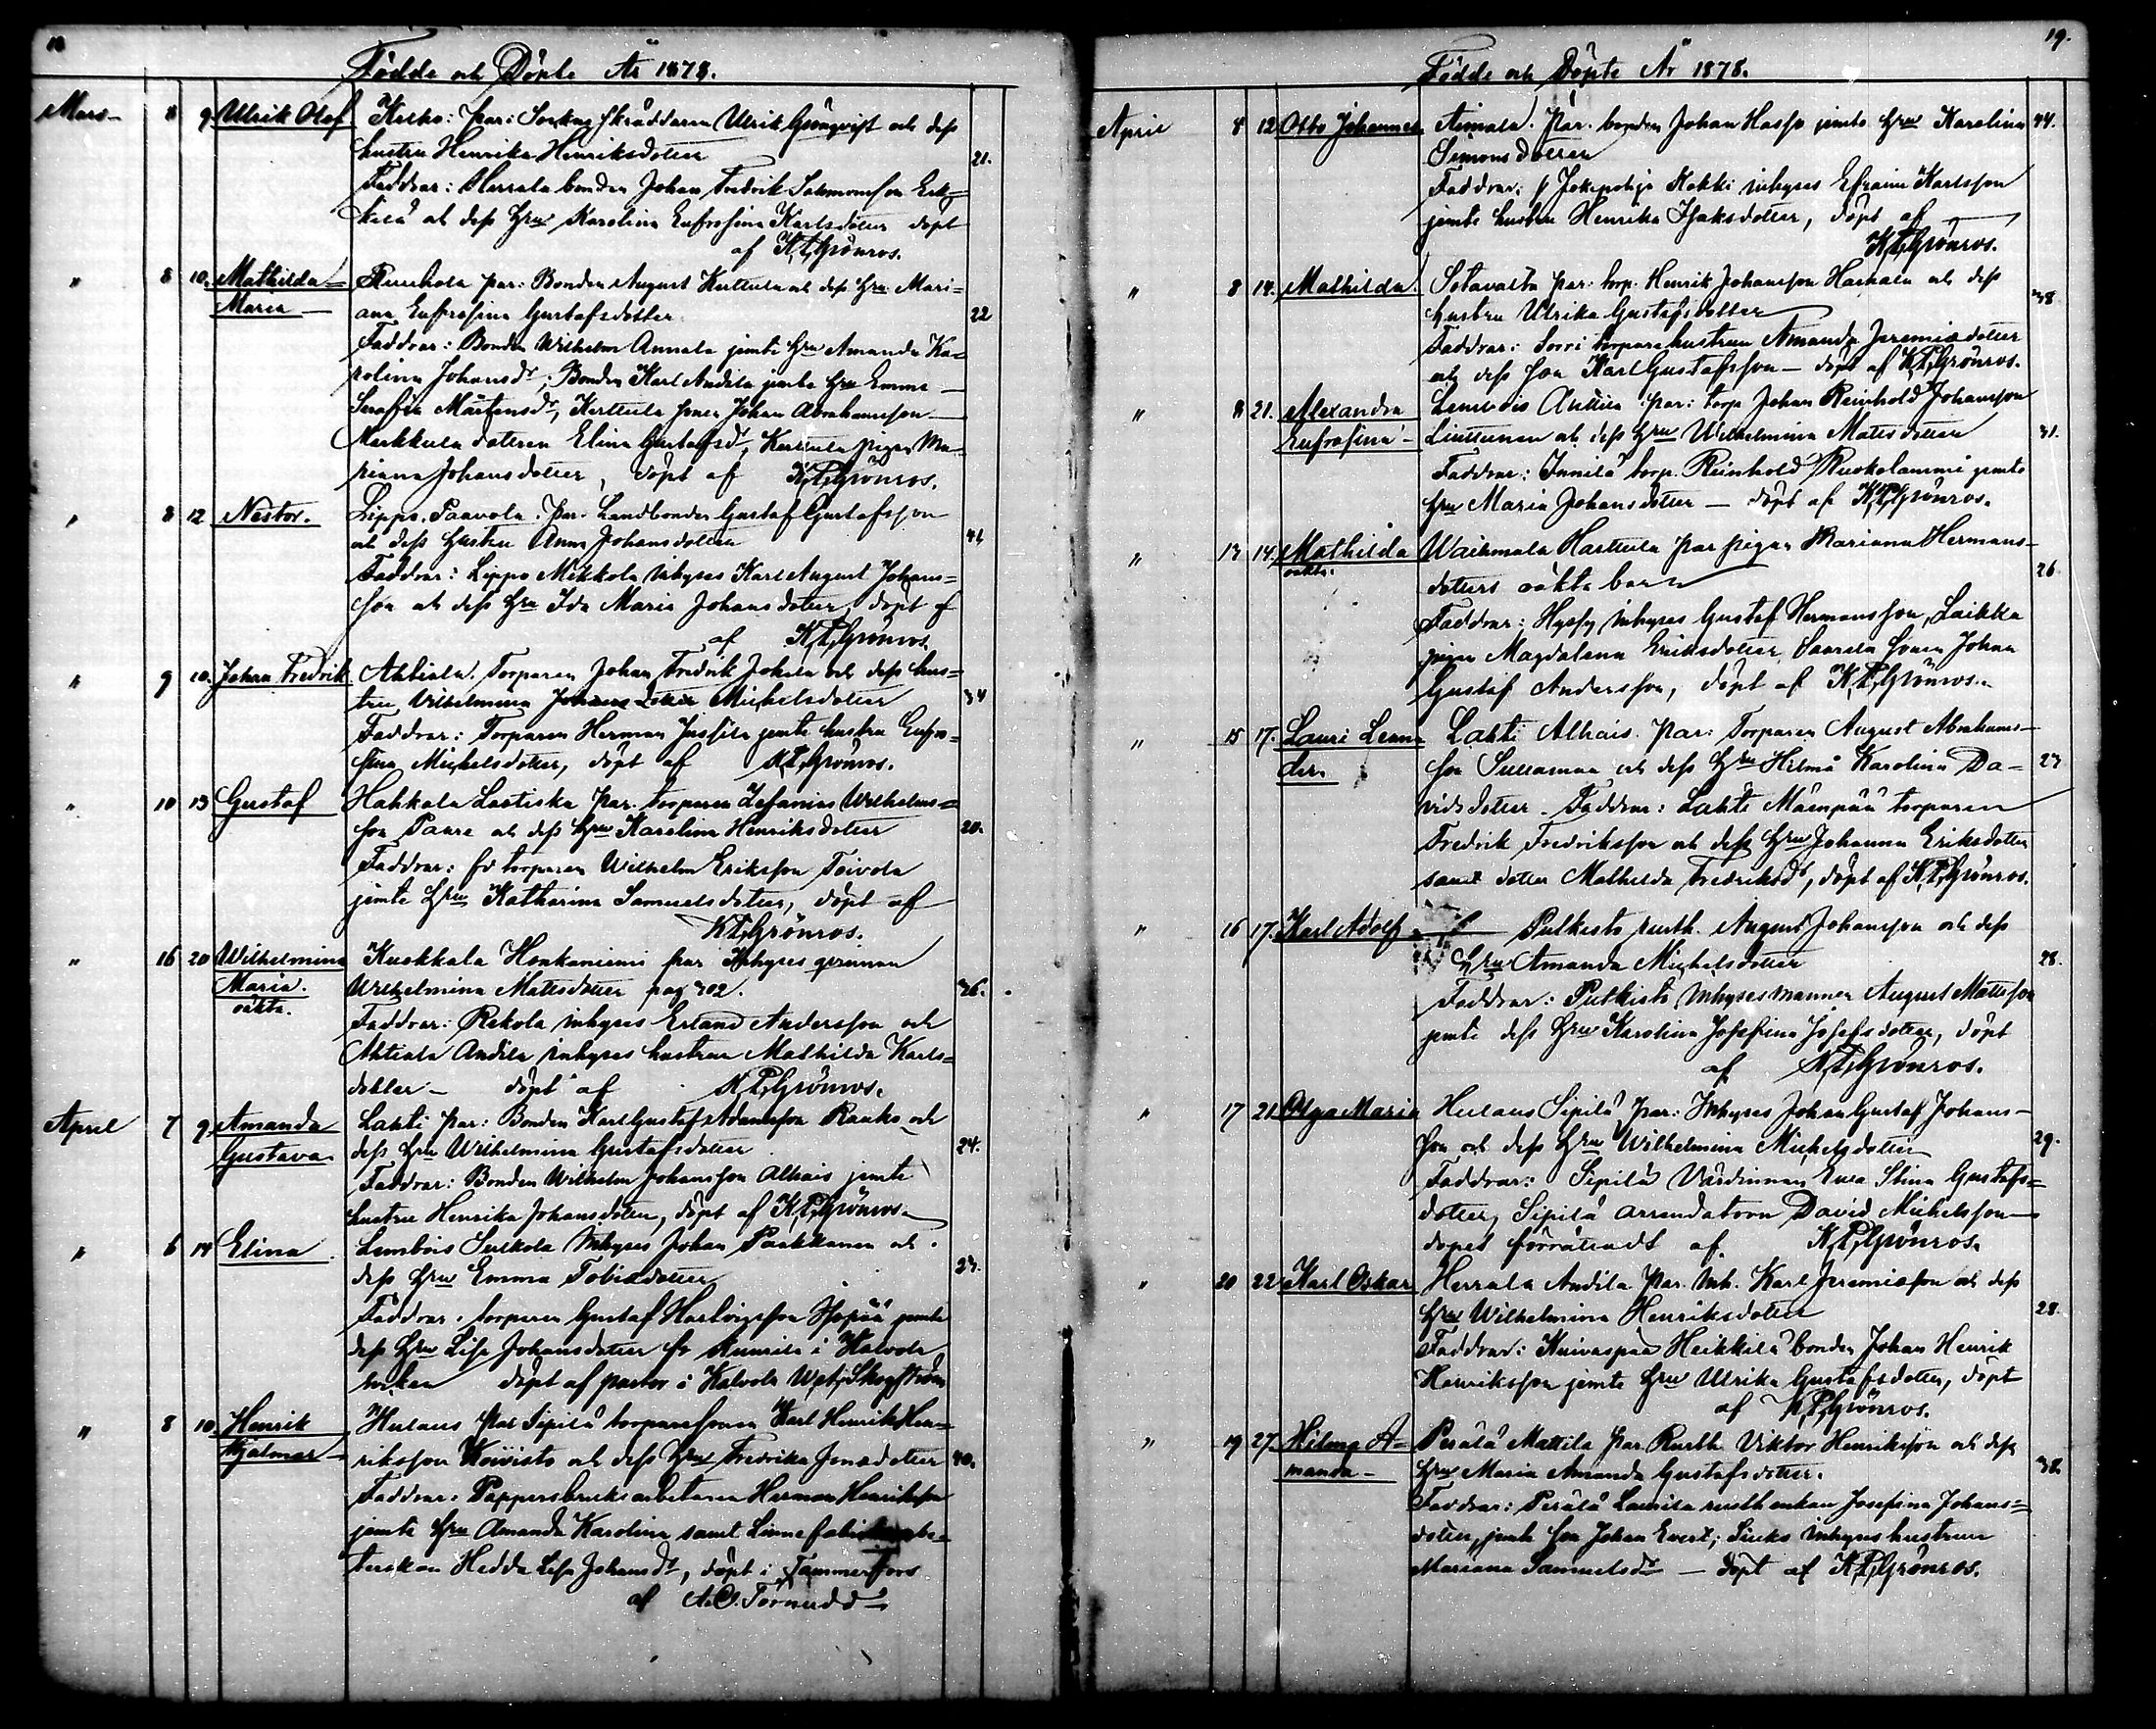 18
Födde och Döpte År 1878.
Mars 8 9 Ulrik Olof Kesko: par: Socknes skräddaren Ulrik Grönqvist och dess
hustru Henrika Henriksdotter 21.
Faddrar: Herrala bonden Johan Fredrik Salomonsson Erk=
kilä och dess hru Karolina Eufrosina Karlsdotter döpt
af K,F,Grönros.
" 8 10. Mathilda Maria Ruuhola par: Bonden August Kerttula och dess hru Mari=
ana Eufrosina Gustafsdotter 22
Faddrar: Bonden Wilhelm Annala jemte hru Amanda Ka=
rolina Johansdr, Bonden Karl Andila jemte hru Emma
Serafia Mårtensdr, Kerttula sonen Johan Abrahamsson
Markkula dottren Elina Gustafsdr, Kerttula pigan Ma=
riana Johansdotter, döpt af K,F,Grönros.
" 8 12 Nestor. Lippo. Paavola. par. Landbonden Gustaf Gustafsson
och dess hustru Anna Johansdotter 41
Faddrar: Lippo Mikkola inhyses Karl August Johans=
son och dess hru Ida Maria Johansdotter, döpt af
af K,F,Grönros.
" 9 10. Johan Fredrik Ahtiala. Torparen Johan Fredrik Johala och dess hus=
tru Vilhelmina Johansdotter Michelsdotter 34
Faddrar: Torparen Herman Jussila jemte hustru Eufro=
sina Michelsdotter, döpt af K,F,Grönros.
" 10 13 Gustaf Hahkala Lastiska par. torparen Zefanias Wilhelms=
son Paare och dess hru Karolina Henriksdotter 20.
Faddrar: fd torparen Wilhelm Eriksson Toivola
jemte hru Katharina Samuelsdotter, döpt af
K,F,Grönros.
" 16 20 Wilhelmina Maria. oäkta. Kuokkala Honkaniemi par Inhyses qvinnan
Wilhelmina Mattsdotter pag 302. 36.
Faddrar: Rekola inhyses Erland Andersson och
Ahtiala Andila inhyses hustrun Mathilda Karls=
dotter – döpt af K,F,Grönros.
April 7 9 Amanda Gustava Lahti par: Bonden Karl Gustaf Adamsson Rauko och
dess hru Wilhelmina Gustafsdotter 24.
Faddrar: Bonden Wilhelm Johansson Alhais jemte
hustru Henrika Johansdotter, döpt af K,F,Grönros.
" 6 14 Elina Lembois Suikola Inhyses Johan Paakkanen och
dess hru Emma Tobiasdotter 23.
Faddrar. torparen Gustaf Hartvigsson Isopää jemte
dess hru Lisa Johansdotter fr Annila i Kalvola
socken döpt af pastor i Kalvola Skogström
" 8 10. Henrik Hjalmar Hulaus par Sipilä torparesonen Karl Henrik Hen=
riksson Koivisto och dess hru Fredrika Jonasdotter 40.
Faddrar. Pappersbruksarbetaren Herman Henriksson
jemte hru Amanda Karolina samt Linnefabriksarbe=
terskan Hedda Lisa Johansdr, döpt i Tammerfors
af A.O. Törnudd
19.
Födde och Döpte År 1878.
April 8 12 Otto Johannes Aimala. Par. bonden Johan Hasso jemte hru Karolina 44.
Simonsdotter
Faddrar: fr Jokipohja Kokki inhyses Efraim Karlsson
jemte hustru Henrika Isaksdotter, döpt af
K,F,Grönros.
" 8 14. Mathilda. Sotavalta par: torp. Henrik Johansson Haikala och dess
hustru Ulrika Gustafsdotter 38
Faddrar: Sorri torparehustrun Amanda Jeremiædotter
och dess son Karl Gustafsson – döpt af K,F,Grönros.
" 8 21. Alexandra Eufrosina Lembois Anttila par: torp Johan Reinhold Johansson
Liutunen och dess hru Wilhelmina Mattsdotter 31.
Faddrar: Innilä torp. Reinhold Ruokolammi jemte
hru Maria Johansdotter – döpt af K,F,Grönros.
" 13 14. Mathilda oäkta. Waihmala Harttula par pigan Mariana Hermans-
dotters oäkta barn 26
Faddrar: Hyssy inhyses Gustaf Hermansson, Laikka
pigan Magdalena Eriksdotter, Saarela sonen Johan
Gustaf Andersson, döpt af K,F,Grönros.
" 15 17. Lauri Leander Lahti Alhais. par: Torparen August Abrahams-
son Sullamaa och dess hru Hilma Karolina Da- 23
vidsdotter. Faddrar: Lahti Mäenpää torparen
Fredrik Fredriksson och dess hru Johanna Eriksdotter
samt dotter Mathilda Fredriksdr, döpt af K,F,Grönros.
" 16 17. Karl Adolf Pulkisto rusth. August Johansson och dess
hru Amanda Michelsdotter 28.
Faddrar: Putkisto inhysesmannen August Mattsson
jemte dess hru Karolina Josefina Josefsdotter, döpt
af K,F,Grönros.
" 17 21. Olga Maria Hulaus Sipilä par: Inhyses Johan Gustaf Johans-
son och dess hru Wilhelmina Michelsdotter 29.
Faddrar: Sipilä Värdinnan Eva Stina Gustafs=
dotter, Sipilä arrendatorn David Michelsson
dopet förrättadt af K,F,Grönros.
" 20 22 Karl Oskar Herrala Andila par. Inh. Karl Jeremiasson och dess
hru Wilhelmina Henriksdotter 28.
Faddrar: Kuivaspää Heikkilä bonden Johan Henrik
Henriksson jemte hru Ulrika Gustafsdotter, döpt
af K,F,Grönros.
" 19 27. Hilma A= manda – Perälä Mattila par Rusth. Viktor Henriksson och dess
hru Maria Amanda Gustafsdotter. 38.
Faddrar: Perälä Laurila rusth enkan Josefina Johans=
dotter, jemte son Johan Evert; Sieks inhyses hustrun
Mariana Samuelsdr – döpt af K,F,Grönros.